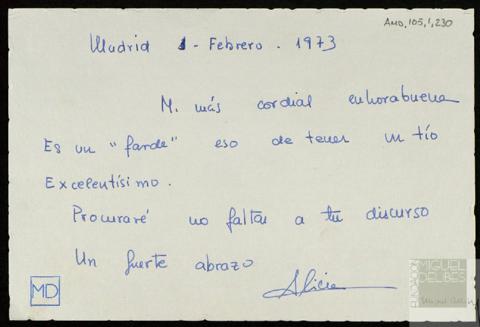 AMD,105,1,230
Madrid 1 - Febrero . 1973
M. más cordial enhorabuena
Es un "farde" eso de tener un tío
Excelentísimo.
Procuraré no faltar a tu discurso
Un fuerte abrazo
Alicia
MD
FUNDACIÓN
MIGUEL
DELIBES